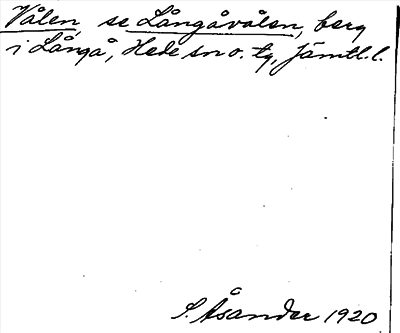 Vålen, se Långåvålen, berg
i Långå, Hede sn o. tg, Jämtl. l.
S. Åsander 1920